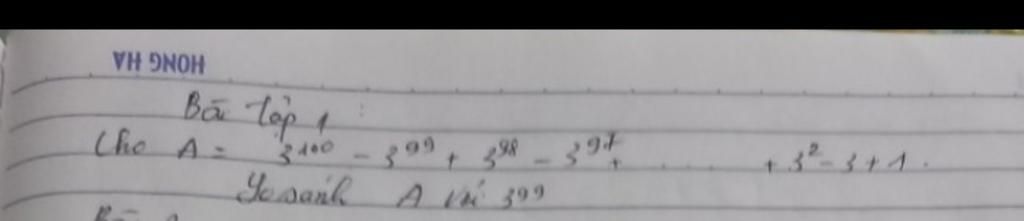 HONG HA
Bài tập 1 :
Cho A = 3¹⁰⁰ - 3⁹⁹ + 3⁹⁸ - 3⁹⁷ + . . . . + 3² - 3 + 1 .
So sánh A với 3⁹⁹